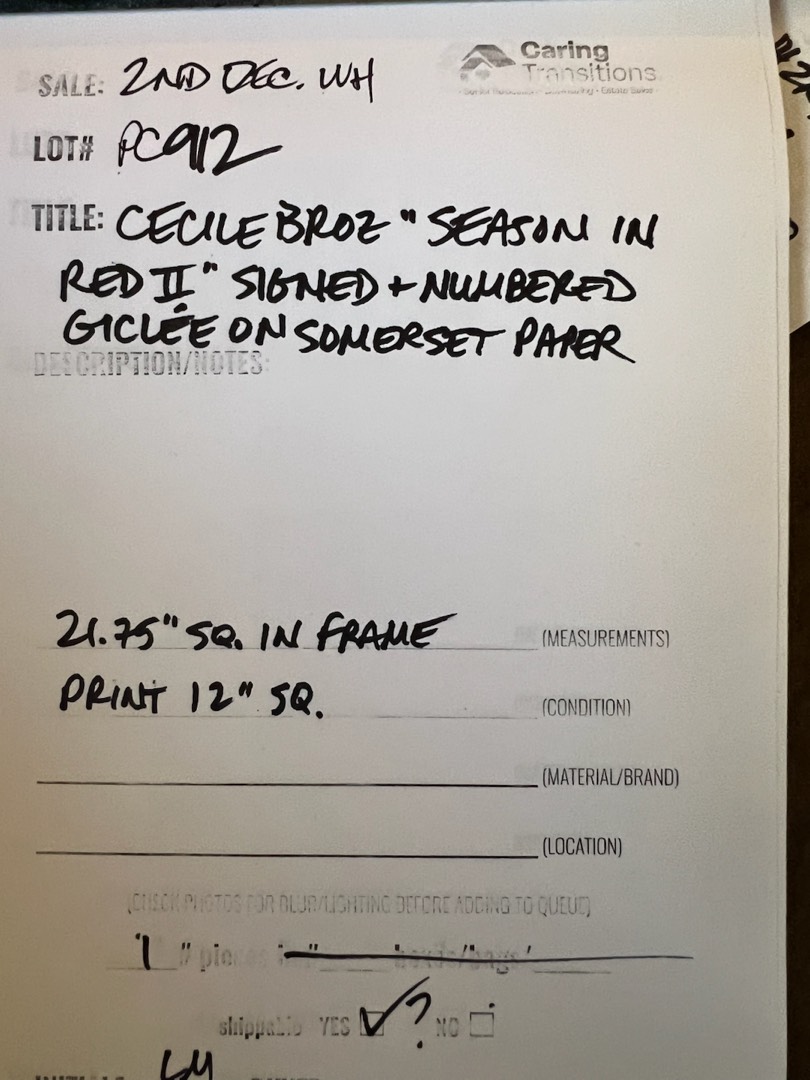 Caring
Transitions
SALE: 2ND DEC. WH
LOT# PC912
TITLE: CECILE BROZ "SEASON IN
RED II" SIGNED + NUMBERED
GICLÉE ON SOMERSET PAPER
DESCRIPTION/NOTES:
21.75" SQ. IN FRAME (MEASUREMENTS)
PRINT 12" SQ. (CONDITION)
(MATERIAL/BRAND)
(LOCATION)
(CHECK PHOTOS FOR BLUR/LIGHTING BEFORE ADDING TO QUEUE)
1 # pieces
shippable YES ✓ ? NO